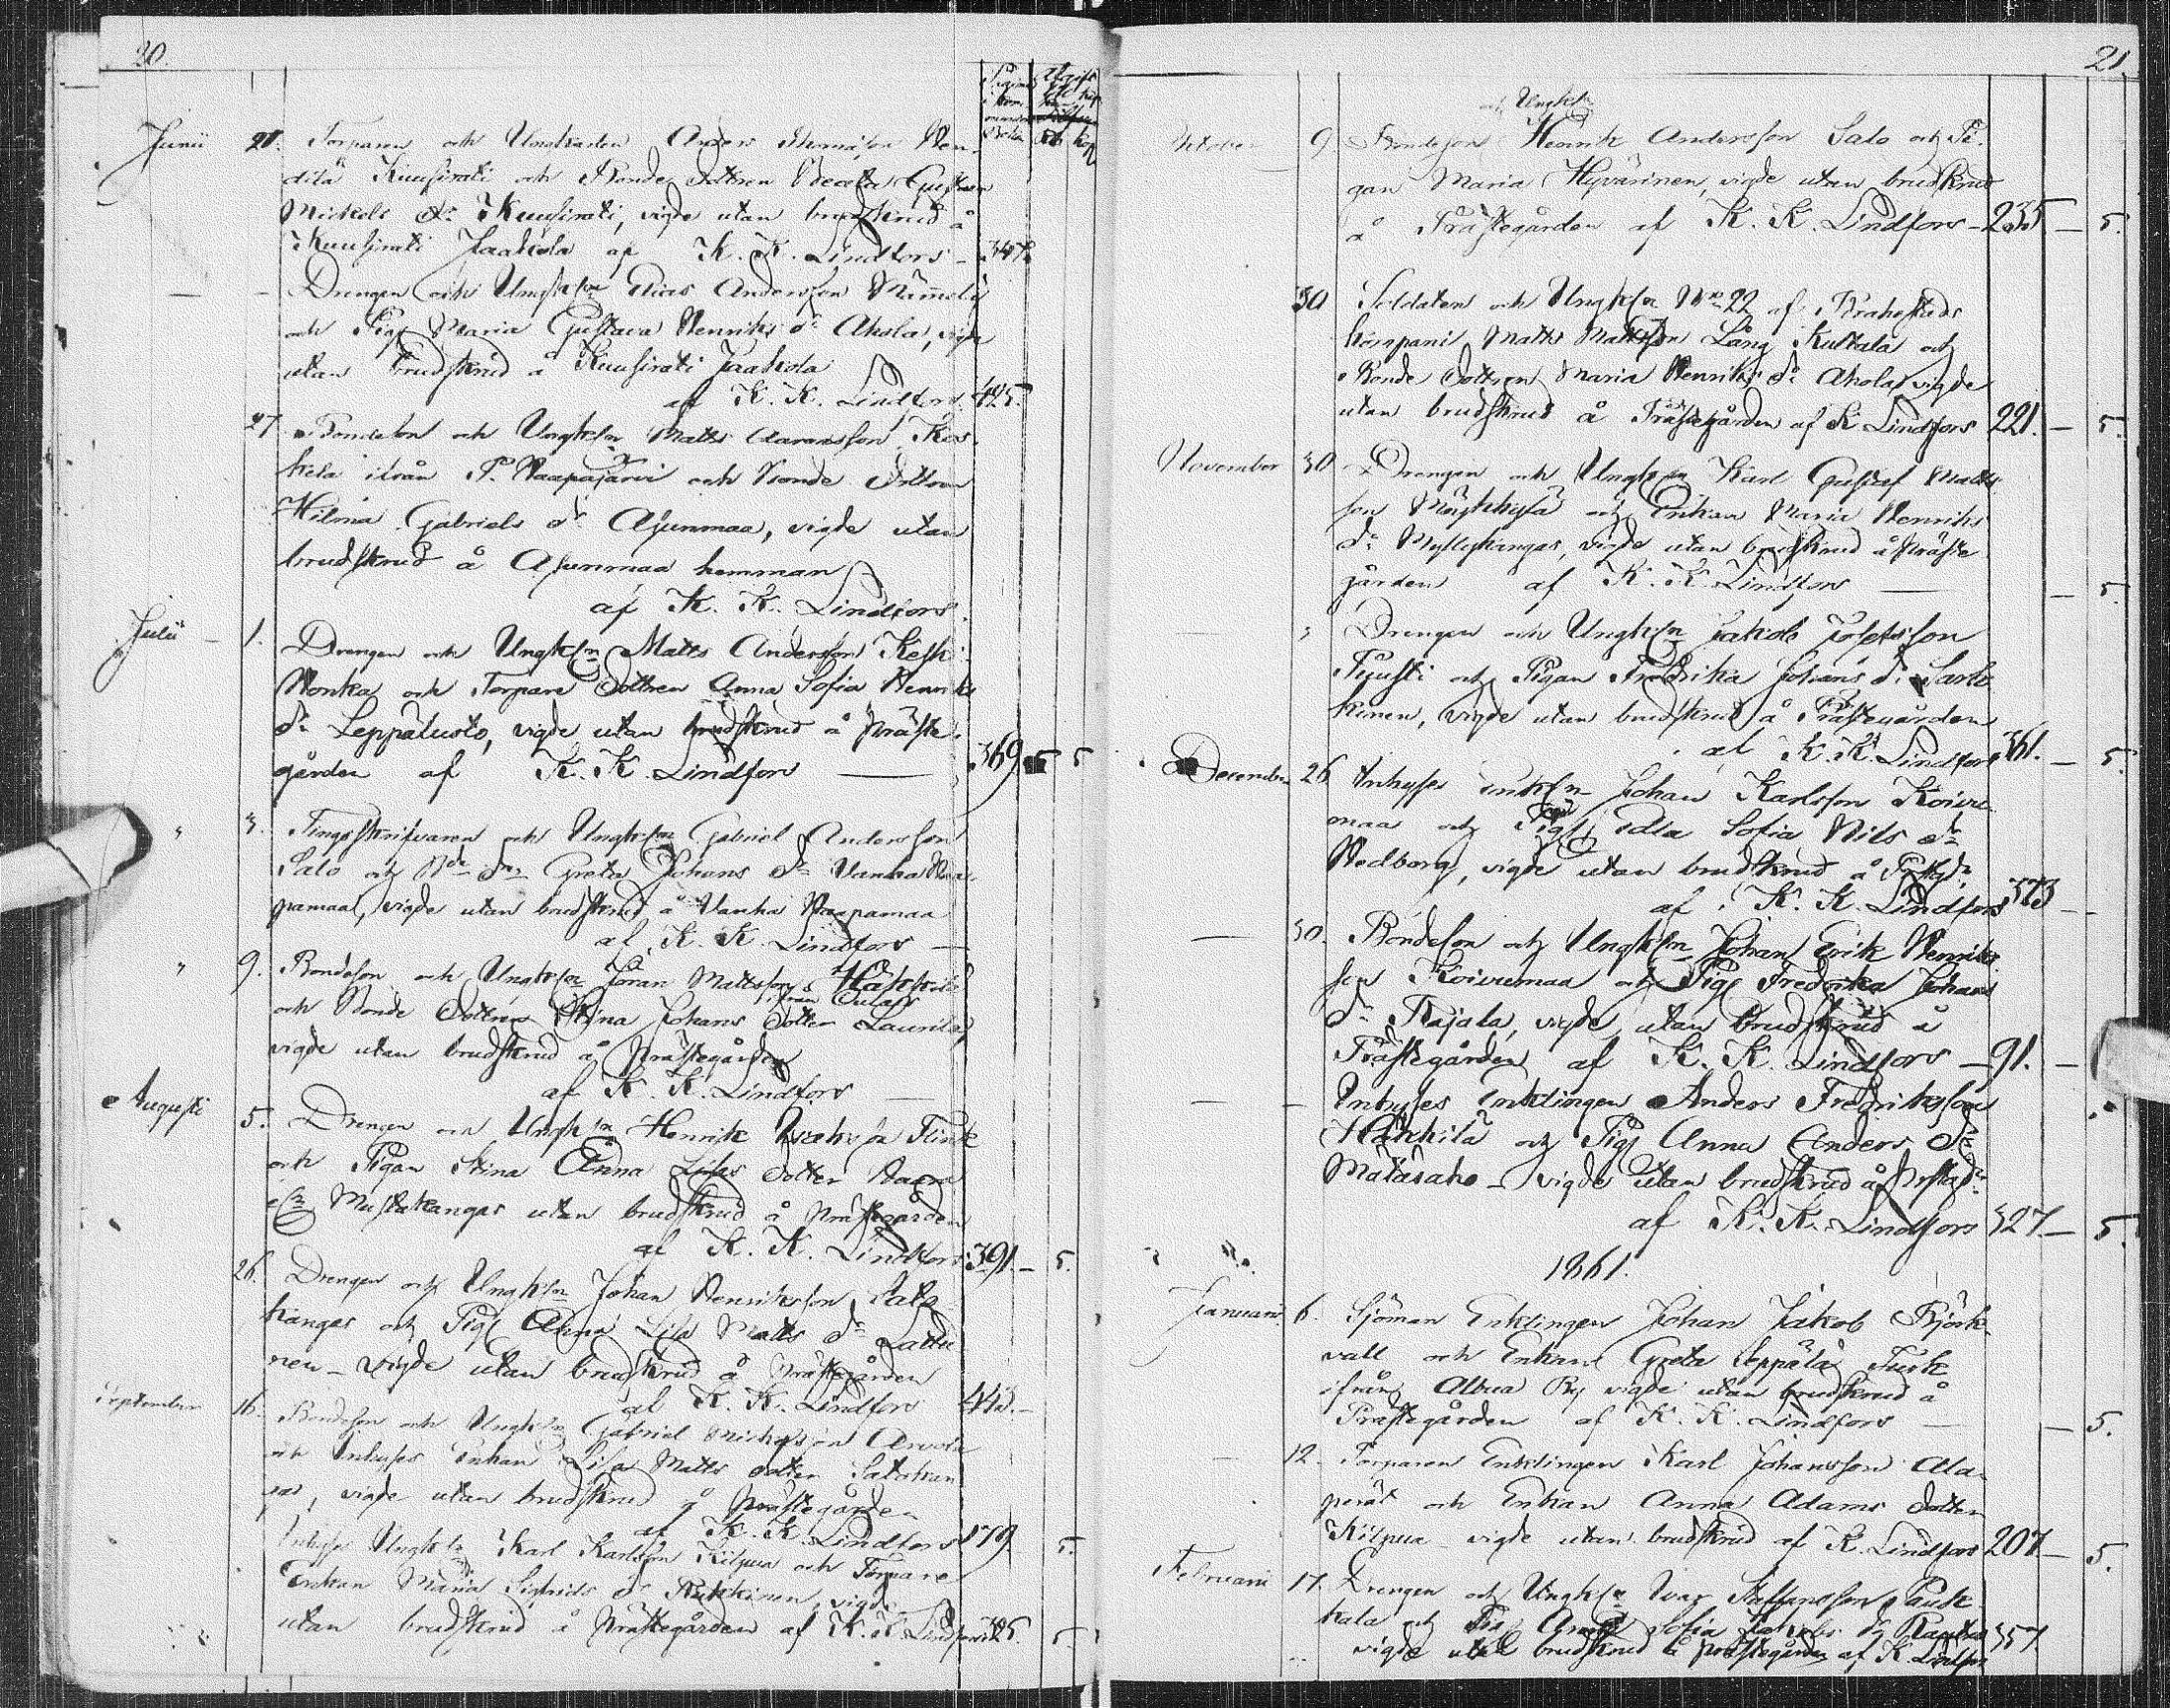 30.
Junii 21. Torparen och Ungkarlen Anders Thomasson
Kuusirati och Bonde Dottren Beata Gustava
Mickels dr Kuusirati, vigde utan brudskrud å
Kuusirati Jaakola af K. K. Lindfors - 347.
— - Drengen och Ungksn Elias Andersson
och Pig Maria Gustava Henriks dr Ahola, vigde
utan brudskrud å Kuusirati Jaakola
af K. K. Lindfors. 425.
27 Bondeson och Ungksn Matts Aaronsson Kos-
kela ifrån P. Haapajärvi och Bonde Dottren
Hilma Gabriels dr Ajunmaa, vigde utan
brudskrud å Ajunmaa hemman
af K. K. Lindfors.
Julii - 1. Drengen och Ungksn Matts Andersson Keski
Honka och Torpare Dottren Anna Sofia Henriks
dr Leppäluoto, vigde utan brudskrud å Präste-
gården af K. K. Lindfors — 369. 5
" 3. Tingsskrifvaren och Ungksn Gabriel Andersson
Salo och Greta Johans dr Vanha Haa-
pamaa, vigde utan brudskrud å Vanha Haapamaa
af K. K. Lindfors —
" 9. Bondeson och Ungksn Göran Mattsson Häkkilä
från Oulais
och Bonde Dottren Stina Johans Dotter Laurila,
vigde utan brudskrud å Prästegården
af K. K. Lindfors —
Augusti 5. Drengen och Ungksn Henrik Isaksson Flink
och Pigan Stina Anna Lisas dotter
Mustakangas utan brudskrud å Prästegården
af K. K. Lindfors 391. - 5.
26. Drengen och Ungksn Johan Henriksson Sato
kangas och Pig Anna Lisa Matts dr Lattu
nen - vigde utan brudskrud å Prästegården
af K. K. Lindfors 443. -
September 16. Bondeson och Ungksn Gabriel Mickelsson Arvola
och Inhyses Enkan Lisa Matts dotter Satokan
gas, vigde utan brudskrud å Prästegården
af K. K. Lindfors 179. 5.
Inhyses Ungksn Karl Karlsson Kilpua och Torpare
Enkan Maria Sigfrids dr Pukkinen, vigde
utan brudskrud å Prästegården af K. K. Lindfors 325. 5.
21.
och Ungksn
Oktober 9 Bondeson Henrik Andersson Salo och Pi-
gan Maria Hyvärinen, vigde utan brudskrud
å Prästegården af K. K. Lindfors - 235. — 5.
30 Soldaten och Ungksn No 22 af Brahestads
kompani Matts Mattsson Lång Kultala och
Bonde Dottren Maria Henriks dr Ahola, vigde
utan brudskrud å Prästegården af K Lindfors 221. — 5.
November 30 Drengen och Ungksn Karl Gustaf Matts
son Möykkylä och Enkan Maria Henriks
dr Myllykangas, vigde utan brudskrud å Präste
gården af K. K. Lindfors — — 5.
Drengen och Ungksn Jakob Josefsson
Pyysti och Pigan Fredrika Johans dr Sarki
kinen, vigde utan brudskrud å Prästegården
af K. K. Lindfors 361. — 5.
December 26 Inhyses Enkln Johan Karlsson Koivu
maa och Pig Edla Sofia Nils dr
Hedberg, vigde utan brudskrud å Pstgdn
af K. K. Lindfors 373 -
— 30. Bondeson och Ungksn Johan Erik Henriks
son Koivumaa och Pig Fredrika Johans
dr Rajala, vigde utan brudskrud å
Prästegården af K. K. Lindfors — 91. —
— - Inhyses Enklingen Anders Fredriksson
Häkkilä och Pig Anna Anders dr
Matasaho - vigde utan brudskrud å Pstgdn
af K. K. Lindfors 327. — 5.
1861.
Januarii 6. Sjöman Enklingen Johan Jakob Björk-
vall och Enkan Greta Leppälä Tusk
ifrån Albua By vigde utan brudskrud å
Prästegården af K. K. Lindfors — — 5.
— 12. Torparen Enklingen Karl Johansson Ala-
perät och Enkan Anna Adams dotter
Kilpua vigde utan brudskrud af K. Lindfors 207. — 5.
Februarii 17. Drengen och Ungksn Ivar Staffansson Pauk
kala och Pig Anna Sofia Jakobs dr Rautio 357
vigde utan brudskrud å prästegården af K. Lindfors